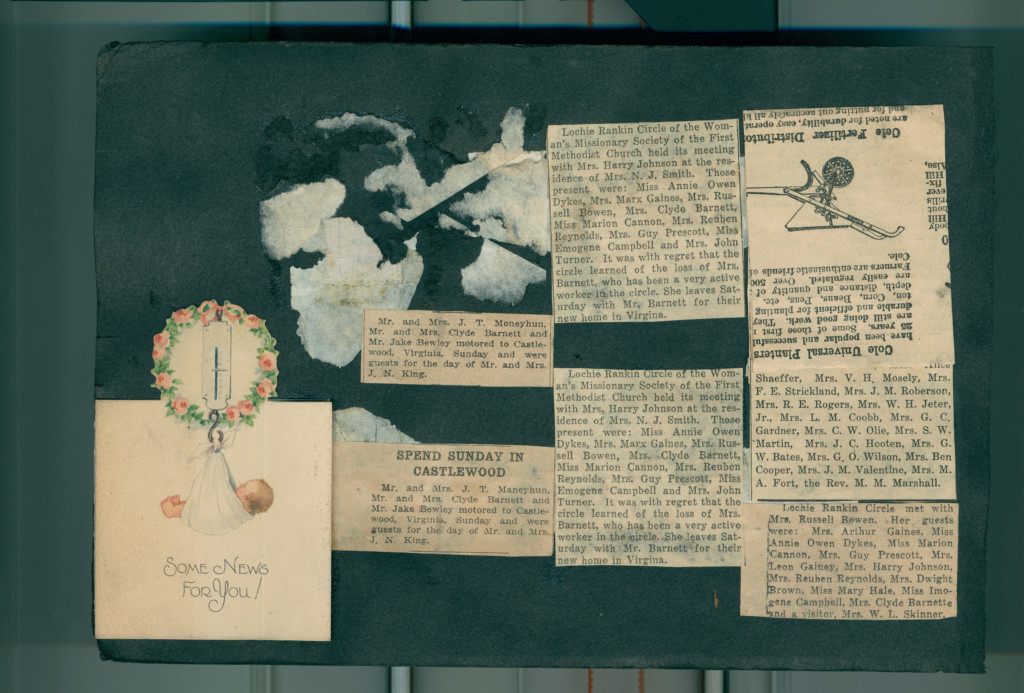 SOME NEWS
FOR YOU!
Mr. and Mrs. J. T. Moneyhun,
Mr. and Mrs. Clyde Barnett and
Mr. Jake Bewley motored to Castle-
wood, Virginia, Sunday and were
guests for the day of Mr. and Mrs.
J. N. King.
SPEND SUNDAY IN
CASTLEWOOD
Mr. and Mrs. J. T. Maneyhun,
Mr. and Mrs. Clyde Barnett and
Mr. Jake Bewley motored to Castle-
wood, Virginia, Sunday and were
guests for the day of Mr. and Mrs.
J. N. King.
Lochie Rankin Circle of the Wom-
an's Missionary Society of the First
Methodist Church held its meeting
with Mrs. Harry Johnson at the res-
idence of Mrs. N. J. Smith. Those
present were: Miss Annie Owen
Dykes, Mrs. Marx Gaines, Mrs. Rus-
sell Bowen, Mrs. Clyde Barnett,
Miss Marion Cannon, Mrs. Reuben
Reynolds, Mrs. Guy Prescott, Miss
Emogene Campbell and Mrs. John
Turner. It was with regret that the
circle learned of the loss of Mrs.
Barnett, who has been a very active
worker in the circle. She leaves Sat-
urday with Mr. Barnett for their
new home in Virgina.
Lochie Rankin Circle of the Wom-
an's Missionary Society of the First
Methodist Church held its meeting
with Mrs, Harry Johnson at the res-
idence of Mrs. N. J. Smith. Those
present were: Miss Annie Owen
Dykes, Mrs. Marx Gaines, Mrs. Rus-
sell Bowen, Mrs. Clyde Barnett,
Miss Marion Cannon, Mrs. Reuben
Reynolds, Mrs. Guy Prescott, Miss
Emogene Campbell and Mrs. John
Turner. It was with regret that the
circle learned of the loss of Mrs.
Barnett, who has been a very active
worker in the circle. She leaves Sat-
urday with Mr. Barnett for their
new home in Virgina.
Cole Universal Planters
have been popular and successful
25 years. Some of those first
are still doing good work. They
durable and efficient for planting
ton, Corn, Beans, Peas, etc.
depth, distance and quantity of
are easily regulated. Over 500
Farmers are enthusiastic friends of
Cole.
Cole Fertilizer Distributor
are noted for durability, easy operat
and for putting out accurately all ki
O
body
Hill
bout
drills
fix-
ever
Hill
Also,
Shaeffer, Mrs. V. H. Mosely, Mrs.
F. E. Strickland, Mrs. J. M. Roberson,
Mrs. R. E. Rogers, Mrs. W. H. Jeter,
Jr., Mrs. L. M. Coobb, Mrs. G. C.
Gardner, Mrs. C. W. Olie, Mrs. S. W.
Martin, Mrs. J. C. Hooten, Mrs. G.
W. Bates, Mrs. G. O. Wilson, Mrs. Ben
Cooper, Mrs. J. M. Valentine, Mrs. M.
A. Fort, the Rev. M. M. Marshall.
Lochie Rankin Circle met with
Mrs. Russell Bowen. Her guests
were: Mrs. Arthur Gaines, Miss
Annie Owen Dykes, Miss Marion
Cannon, Mrs. Guy Prescott, Mrs.
Leon Gainey, Mrs. Harry Johnson,
Mrs. Reuben Reynolds, Mrs. Dwight
Brown, Miss Mary Hale, Miss Imo-
gene Campbell, Mrs. Clyde Barnette
and a visitor, Mrs. W. L. Skinner.